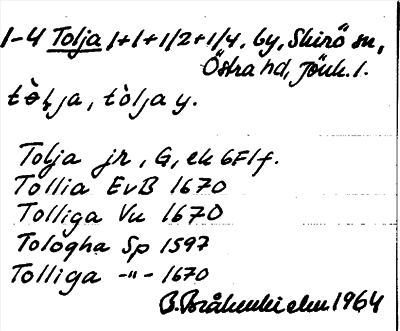 1-4 Tolja 1+1+1/2+1/4, by, Skirö sn,
Östra hd, Jönk. l.
tò̱lja, tòlja y.
Tolja jr, G, ek 6F1f.
Tollia EvB 1670
Tolliga Vu 1670
Tologha Sp 1597
Tolliga -"- 1670
B. 1964